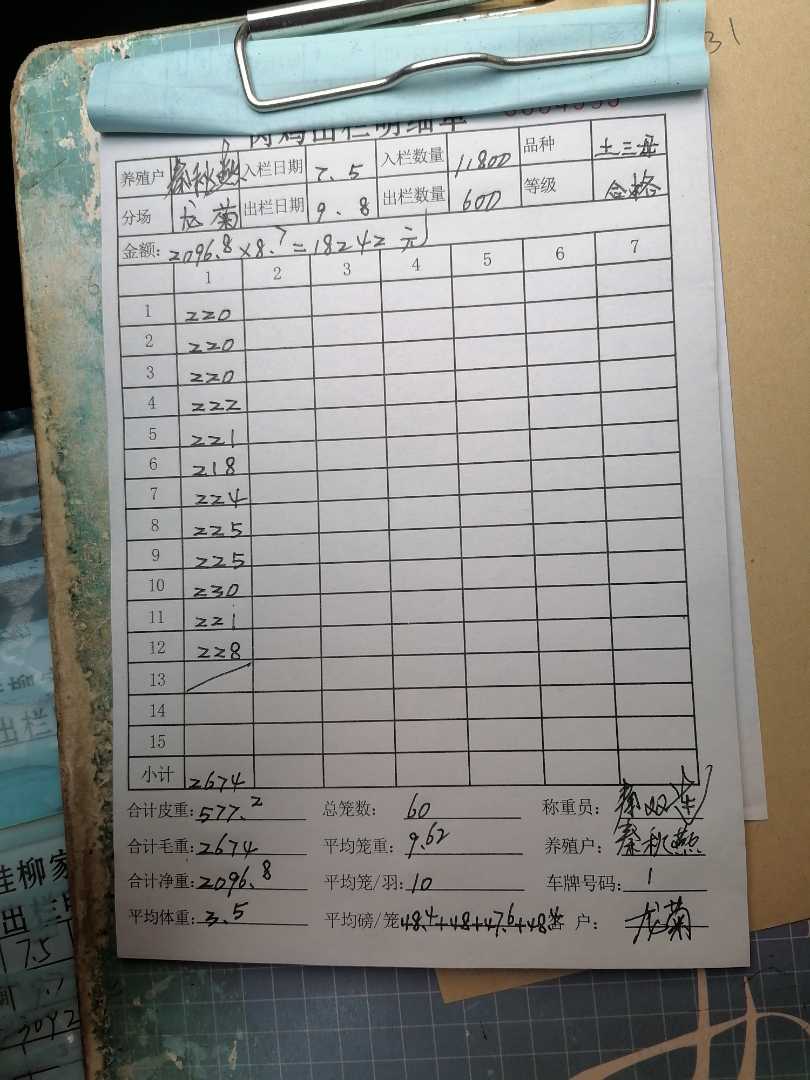 肉鸡出栏明细单
养殖户 秦秋燕 入栏日期 7.5 入栏数量 11800 品种 土三母
分场 龙菊 出栏日期 9.8 出栏数量 600 等级 合格
金额: 2096.8×8.7=18242元
1 2 3 4 5 6 7
1 220
2 220
3 220
4 222
5 221
6 218
7 224
8 225
9 225
10 230
11 221
12 228
13
14
15
小计 2674
合计皮重: 577.2 总笼数: 60 称重员:
合计毛重: 2674 平均笼重: 9.62 养殖户: 秦秋燕
合计净重: 2096.8 平均笼/羽: 10 车牌号码: 1
平均体重: 3.5 平均磅/笼 48.4+48+47.6+48 户: 龙菊
31
出栏
桂柳家
出
7.5